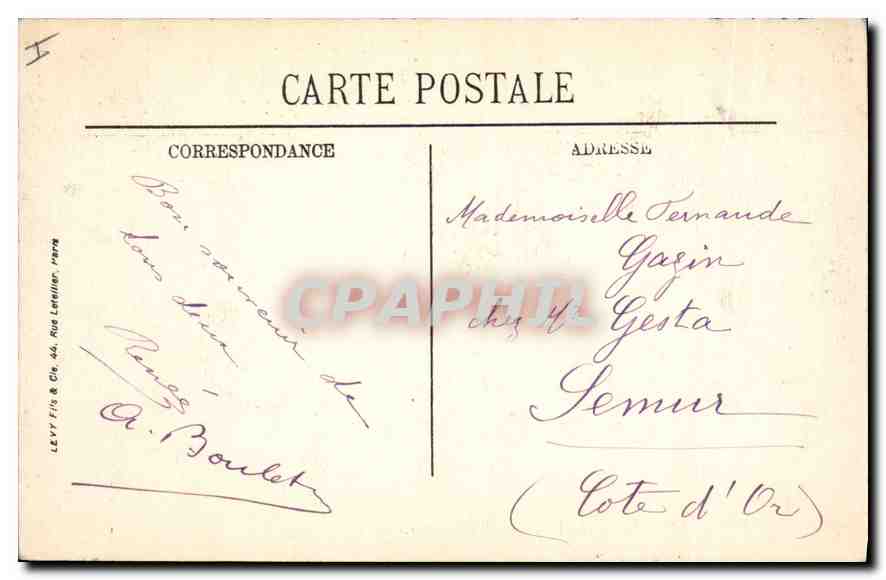 CARTE POSTALE
CORRESPONDANCE
ADRESSE
Bon souvenir de
tous deux
Renée
A. Boulet
Mademoiselle Fernande
Gazin
chez Mr Gesta
Semur
(Cote d'Or)
LEVY Fils & Cie, 44, Rue Letellier, Paris
CPAPHIL